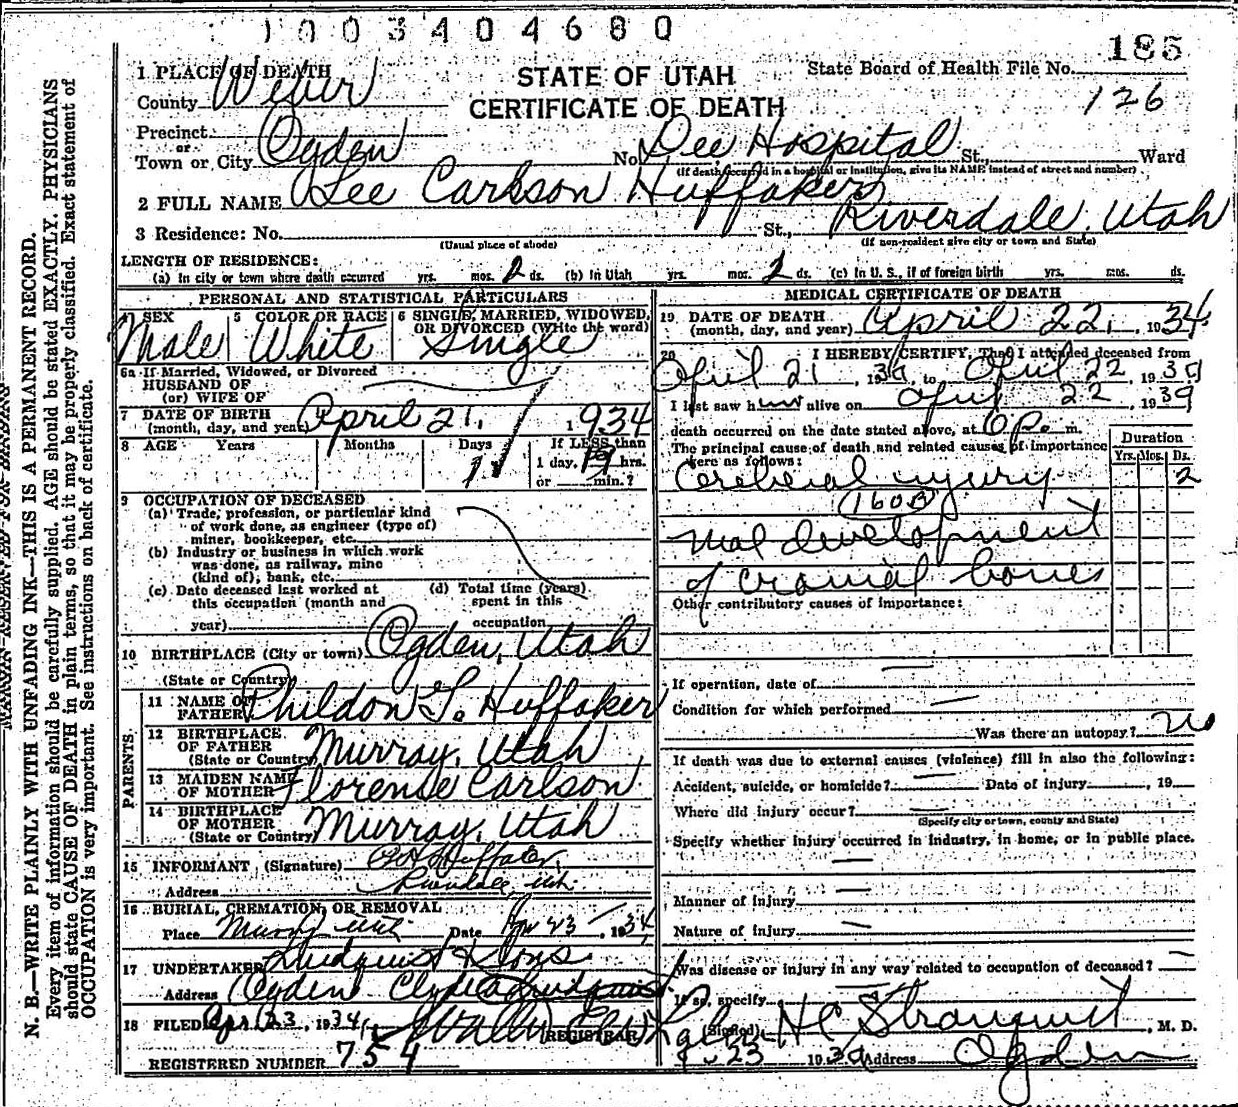 1003404680
185
1 PLACE OF DEATH
STATE OF UTAH
State Board of Health File No.
County Weber
CERTIFICATE OF DEATH
126
Precinct
or
Town or City Ogden No. Dee Hospital St., Ward
(If death occurred in a hospital or institution, give its NAME instead of street and number)
2 FULL NAME Lee Carlson Huffaker
3 Residence: No. St., Riverdale, Utah
(Usual place of abode) (If non-resident give city or town and State)
LENGTH OF RESIDENCE:
(a) In city or town where death occurred yrs. mos. 2 ds. (b) In Utah yrs. mos. 2 ds. (c) In U. S., if of foreign birth yrs. mos. ds.
PERSONAL AND STATISTICAL PARTICULARS
4 SEX 5 COLOR OR RACE 6 SINGLE, MARRIED, WIDOWED,
OR DIVORCED (Write the word)
Male White Single
6a If Married, Widowed, or Divorced
HUSBAND OF
(or) WIFE OF
7 DATE OF BIRTH
(month, day, and year) April 21, 1934
8 AGE Years Months Days If LESS than
1 1 day, hrs.
or min.?
9 OCCUPATION OF DECEASED
(a) Trade, profession, or particular kind
of work done, as engineer (type of)
miner, bookkeeper, etc.
(b) Industry or business in which work
was done, as railway, mine
(kind of), bank, etc.
(c) Date deceased last worked at (d) Total time (years)
this occupation (month and spent in this
year) occupation
10 BIRTHPLACE (City or town) Ogden, Utah
(State or Country)
11 NAME OF
FATHER Phildon G. Huffaker
12 BIRTHPLACE
OF FATHER
(State or Country) Murray, Utah
13 MAIDEN NAME
OF MOTHER Florense Carlson
14 BIRTHPLACE
OF MOTHER
(State or Country) Murray, Utah
PARENTS
15 INFORMANT (Signature) Huffaker
Address Riverdale, Ut.
16 BURIAL, CREMATION, OR REMOVAL
Place Murray Utah Date Apr 23 1934
17 UNDERTAKER Lindquist & Sons
Address Ogden Clyde Lindquist
18 FILED Apr 23, 1934
REGISTRAR
REGISTERED NUMBER 754
MEDICAL CERTIFICATE OF DEATH
19 DATE OF DEATH
(month, day, and year) April 22, 1934
20 I HEREBY CERTIFY, That I attended deceased from
April 21, 1934, to April 22, 1934
I last saw him alive on April 22, 1934
death occurred on the date stated above, at 6 P. m.
The principal cause of death and related causes of importance
were as follows:
Duration
Yrs. Mos. Ds.
Cerebral injury 2
160B
Mal development
of cranial bones
Other contributory causes of importance:
If operation, date of
Condition for which performed
Was there an autopsy? no
If death was due to external causes (violence) fill in also the following:
Accident, suicide, or homicide? Date of injury , 19
Where did injury occur?
(Specify city or town, county and State)
Specify whether injury occurred in industry, in home, or in public place.
Manner of injury
Nature of injury
Was disease or injury in any way related to occupation of deceased?
If so, specify
(Signed) H C Stranquist, M. D.
23 1934 Address Ogden
MARGIN RESERVED FOR BINDING
N. B.—WRITE PLAINLY WITH UNFADING INK—THIS IS A PERMANENT RECORD.
Every item of information should be carefully supplied. AGE should be stated EXACTLY. PHYSICIANS
should state CAUSE OF DEATH in plain terms, so that it may be properly classified. Exact statement of
OCCUPATION is very important. See instructions on back of certificate.